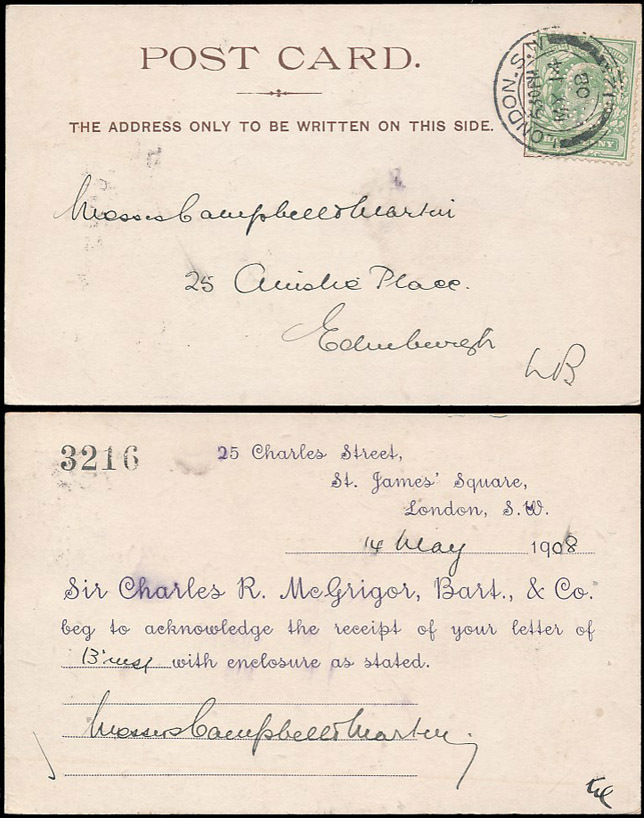 POST CARD.
THE ADDRESS ONLY TO BE WRITTEN ON THIS SIDE.
LONDON. S.W
MY 14
08
Messrs Campbell & Martin
25 Ainslie Place.
Edinburgh
3216
25 Charles Street,
St. James' Square,
London, S.W.
14 May 1908
Sir Charles R. McGrigor, Bart., & Co.
beg to acknowledge the receipt of your letter of
13 inst with enclosure as stated.
Messrs Campbell & Martin